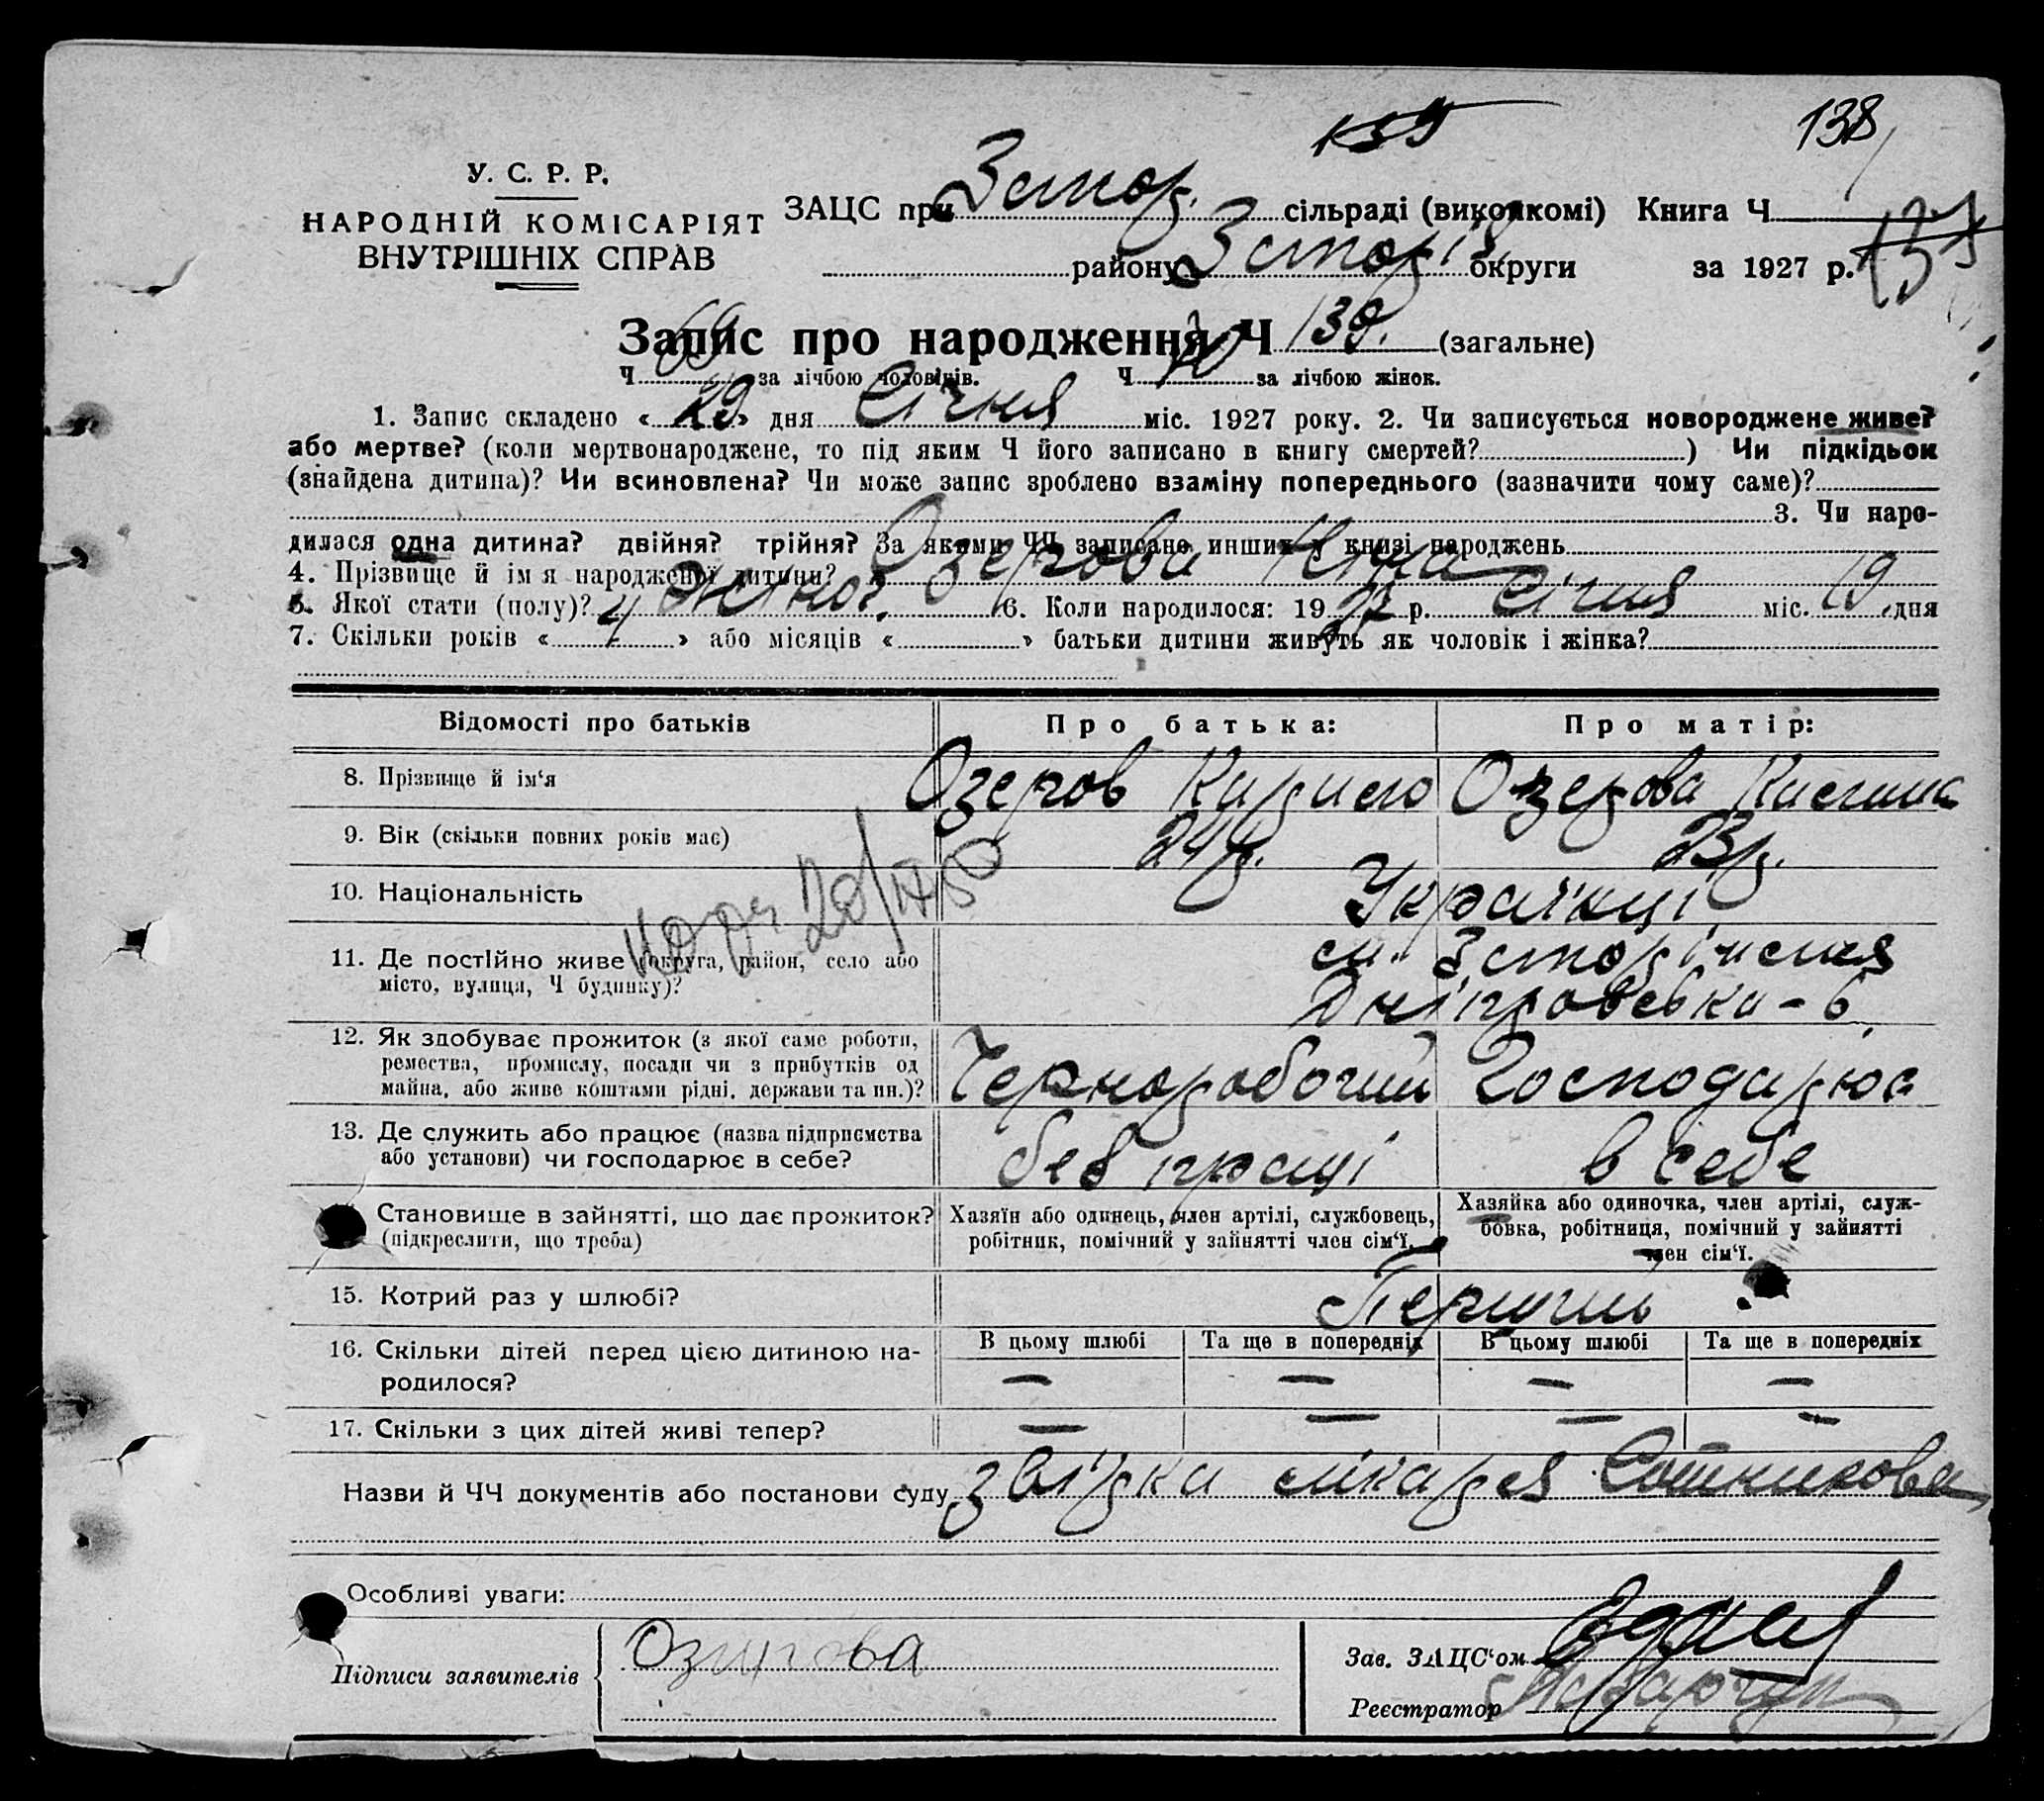 159
138
У. С. Р. Р.
НАРОДНІЙ КОМІСАРІЯТ
ВНУТРІШНІХ СПРАВ
ЗАЦС при Запор. сільраді (виконкомі) Книга Ч
району Запоріз округи за 1927 р. 137
Запис про народження Ч 139. (загальне)
Ч 69 за лічбою чоловіків. Ч 70 за лічбою жінок.
1. Запис складено « 29 » дня Січня міс. 1927 року. 2. Чи записується новороджене живе?
або мертве? (коли мертвонароджене, то під яким Ч його записано в книгу смертей? ) Чи підкідьок
(знайдена дитина)? Чи всиновлена? Чи може запис зроблено взаміну попереднього (зазначити чому саме)?
3. Чи наро-
дилася одна дитина? двійня? трійня? За якими ЧЧ записано инших у книзі народжень
4. Прізвище й ім я народженої дитини? Озерова Ніна
5. Якої стати (полу)? Жіноч. 6. Коли народилося: 19 27 р. Січня міс. 19 дня
7. Скільки років « 4 » або місяців « » батьки дитини живуть як чоловік і жінка?
Відомості про батьків Про батька: Про матір:
8. Прізвище й ім'я Озеров Кирило Озерова
9. Вік (скільки повних років має) 24 р. 23 р.
10. Національність Українці
11. Де постійно живе (округа, район, село або
місто, вулиця, Ч будинку)?
Дніпровська - 6
12. Як здобуває прожиток (з якої саме роботи,
ремества, промислу, посади чи з прибутків од
майна, або живе коштами рідні, держави та ин.)?
Черноробочий Господарює
13. Де служить або працює (назва підприємства
або установи) чи господарює в себе?
без праці в себе
Становище в зайнятті, що дає прожиток?
(підкреслити, що треба)
Хазяїн або одинець, член артілі, службовець,
робітник, помічний у зайнятті член сім'ї.
Хазяйка або одиночка, член артілі, служ-
бовка, робітниця, помічний у зайнятті
член сім'ї.
15. Котрий раз у шлюбі? Перший
16. Скільки дітей перед цією дитиною на-
родилося?
В цьому шлюбі Та ще в попередніх В цьому шлюбі Та ще в попередніх
— — — —
17. Скільки з цих дітей живі тепер? — — — —
Назви й ЧЧ документів або постанови суду з лікаря
Особливі уваги:
Підписи заявителів Озирова
Зав. ЗАЦС'ом
Реєстратор